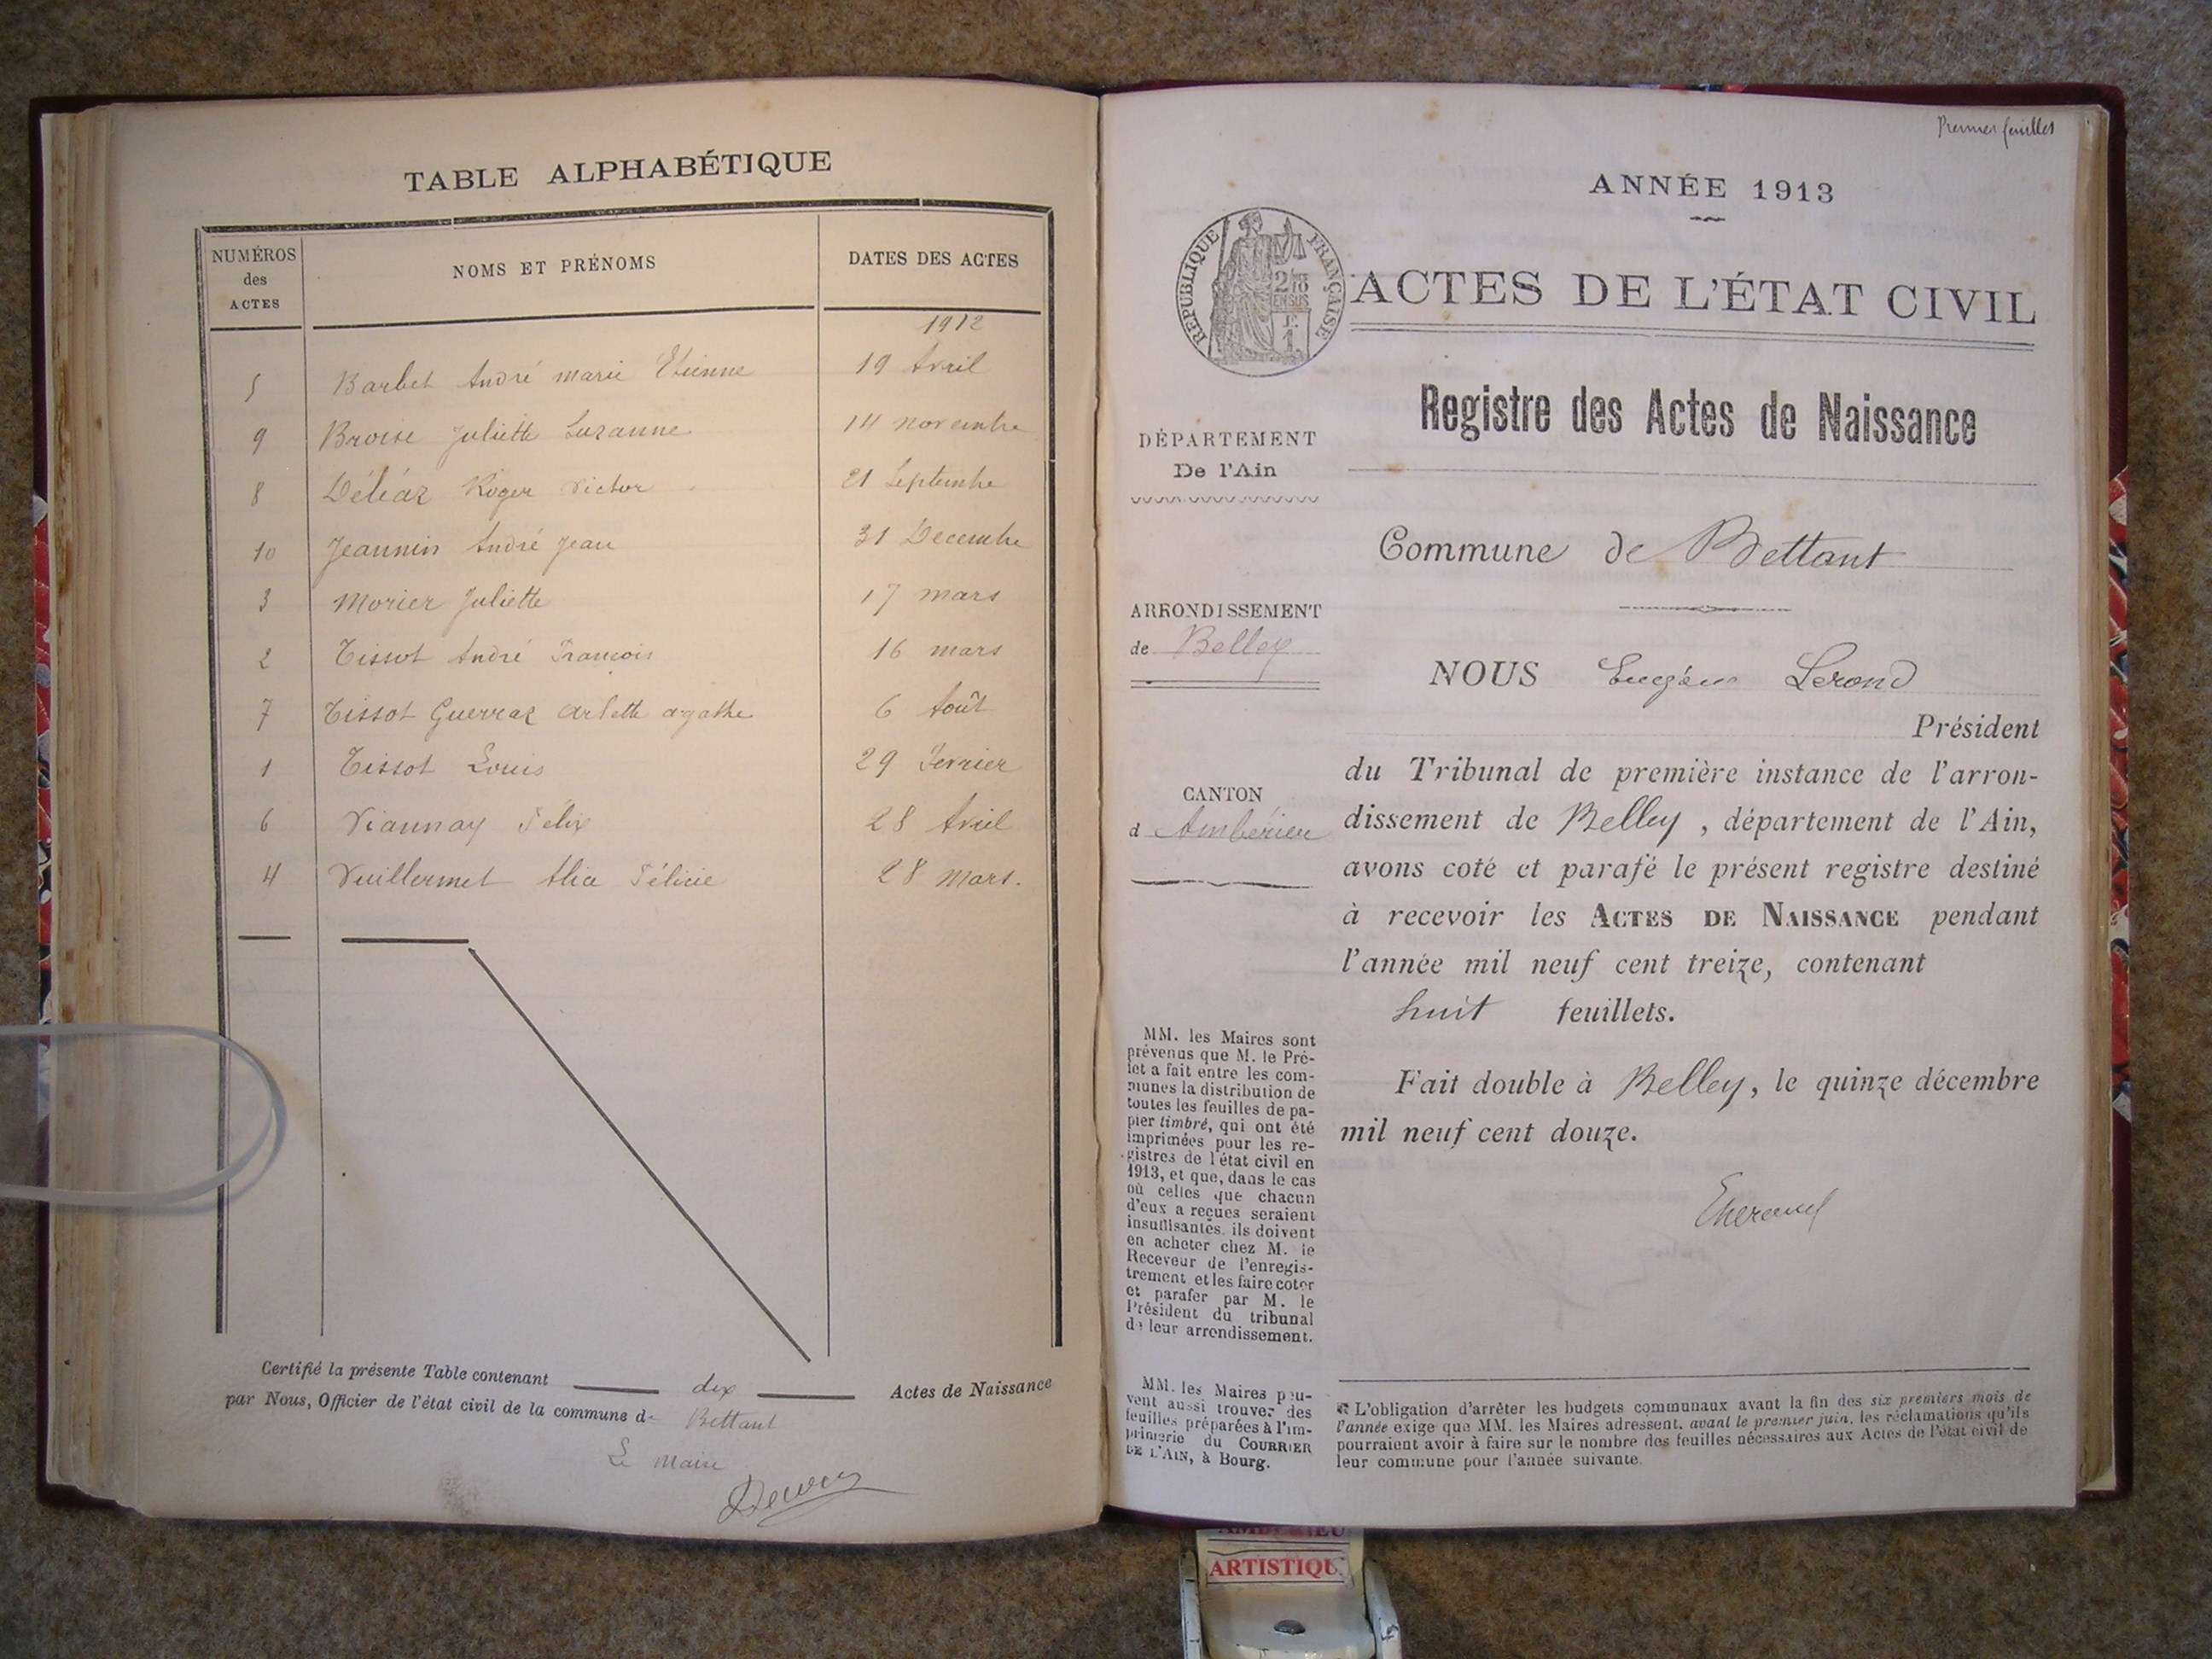 TABLE ALPHABÉTIQUE
NUMÉROS des ACTES
NOMS ET PRÉNOMS
DATES DES ACTES
1912
5 Barbet André marie Etienne 19 Avril
9 Broise Juliette Suzanne 14 novembre
8 Déléaz Roger Victor 21 Septembre
10 Jeannin André Jean 31 Decembre
3 Morier Juliette 17 mars
2 Tissot André François 16 mars
7 Tissot Guerraz Arlette agathe 6 Août
1 Tissot Louis 29 Fevrier
6 Viannay Félix 28 Avril
4 Vuillermet Alice Félicie 28 mars.
Certifié la présente Table contenant dix Actes de Naissance
par Nous, Officier de l'état civil de la commune de Bettant
Le Maire
Premier feuillet
ANNÉE 1913
RÉPUBLIQUE FRANÇAISE
ACTES DE L'ÉTAT CIVIL
Registre des Actes de Naissance
DÉPARTEMENT
De l'Ain
Commune de Bettant
ARRONDISSEMENT
de Belley
NOUS Eugène Lerond
Président
du Tribunal de première instance de l'arron-
CANTON
d'Ambérieu
dissement de Belley, département de l'Ain,
avons coté et parafé le présent registre destiné
à recevoir les ACTES DE NAISSANCE pendant
l'année mil neuf cent treize, contenant
huit feuillets.
Fait double à Belley, le quinze décembre
mil neuf cent douze.
MM. les Maires sont
prévenus que M. le Pré-
fet a fait entre les com-
munes la distribution de
toutes les feuilles de pa-
pier timbré, qui ont été
imprimées pour les re-
gistres de l'état civil en
1913, et que, dans le cas
où celles que chacun
d'eux a reçues seraient
insuffisantes, ils doivent
en acheter chez M. le
Receveur de l'enregis-
trement et les faire coter
et parafer par M. le
Président du tribunal
de leur arrondissement.
MM. les Maires peu-
vent aussi trouver des
feuilles préparées à l'im-
primerie du COURRIER
DE L'AIN, à Bourg.
L'obligation d'arrêter les budgets communaux avant la fin des six premiers mois de
l'année exige que MM. les Maires adressent, avant le premier juin, les réclamations qu'ils
pourraient avoir à faire sur le nombre des feuilles nécessaires aux Actes de l'état civil de
leur commune pour l'année suivante.
ARTISTIQU